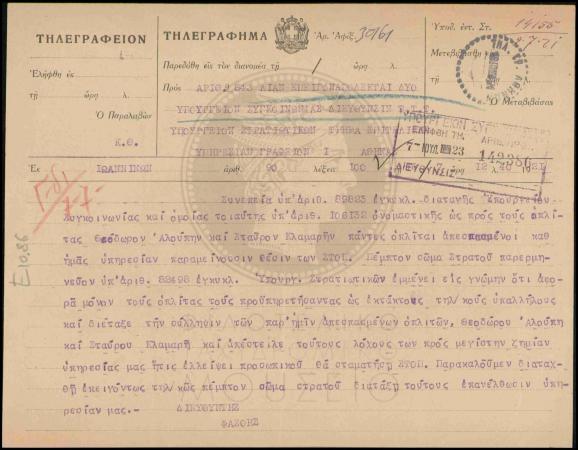 ΤΗΛΕΓΡΑΦΕΙΟΝ
Ἐλήφθη ἐκ
τῇ ὥρᾳ λ.
Ὁ Παραλαβὼν
Κ.Θ.
ΤΗΛΕΓΡΑΦΗΜΑ Ἀρ. Ἀφίξ. 30/61
Παρεδόθη εἰς τὸν διανομέα τῇ ὥρᾳ λ.
Πρὸς ΑΡΙΘ 843 ΛΙΑΝ ΕΠΕΙΓΟΝ ΔΥΟ
ΥΠΟΥΡΓΕΙΟΝ ΣΥΓΚΟΙΝΩΝΙΑΣ ΔΙΕΥΘΥΝΣΙΝ Τ.Τ.Τ.
ΥΠΟΥΡΓΕΙΟΝ ΣΤΡΑΤΙΩΤΙΚΩΝ ΤΜΗΜΑ
ΥΠΗΡΕΣΙΑΝ ΓΡΑΦΕΙΟΝ Ι
Ὑποδ. ἐντ. Στ. 14155
Μετεβιβάσθη
Ὁ Μεταβιβάσας
ΥΠΟΥΡΓΕΙΟΝ
142386
ΔΙΕΥΘΥΝΣΙΣ
Ἐκ ΙΩΑΝΝΙΝΩΝ ἀριθ. 90 λέξεις 100
Συνεπεία ὑπ'ἀριθ. 89823 ἐγκυκλ. διαταγῆς Ὑπουργείου
Συγκοινωνίας καὶ ὁμοίας τοιαύτης ὑπ'ἀριθ. 106132 ὀνομαστικῆς ὡς πρὸς τοὺς ὁπλί
τας Θεόδωρον Ἀλούπην καὶ Σταῦρον Κλαμαρῆν πάντες ὁπλῖται ἀπεσπασμένοι καθ
ἡμᾶς ὑπηρεσίαν παραμείνουσιν θέσιν των ΣΤΟΠ. Πέμπτον σῶμα Στρατοῦ παρερμη-
νεῦον ὑπ'ἀριθ. 82498 ἐγκυκλ. Ὑπουργ. Στρατιωτικῶν ἐμμένει εἰς γνώμην ὅτι ἀφο
ρᾷ μόνον τοὺς ὁπλίτας τοὺς προϋπηρετήσαντας ὡς ἐκτάκτους τηλ/κοὺς ὑπαλλήλους
καὶ διέταξε τὴν σύλληψιν τῶν παρ'ἡμῖν ἀπεσπασμένων ὁπλιτῶν, Θεοδώρου Ἀλούπη
καὶ Σταύρου Κλαμαρῆ καὶ ἀπέστειλε τούτους λόχους των πρὸς μεγίστην ζημίαν
ὑπηρεσίας μας ἥτις ἐλλείψει προσωπικοῦ θὰ σταματήσῃ ΣΤΟΠ. Παρακαλοῦμεν διαταχ-
θῇ ἐπειγόντως τηλ/κῶς πέμπτον σῶμα στρατοῦ διατάξῃ τούτους ἐπανέλθωσιν ὑπη-
ρεσίαν μας.-
ΔΙΕΥΘΥΝΤΗΣ
ΦΑΣΟΗΣ